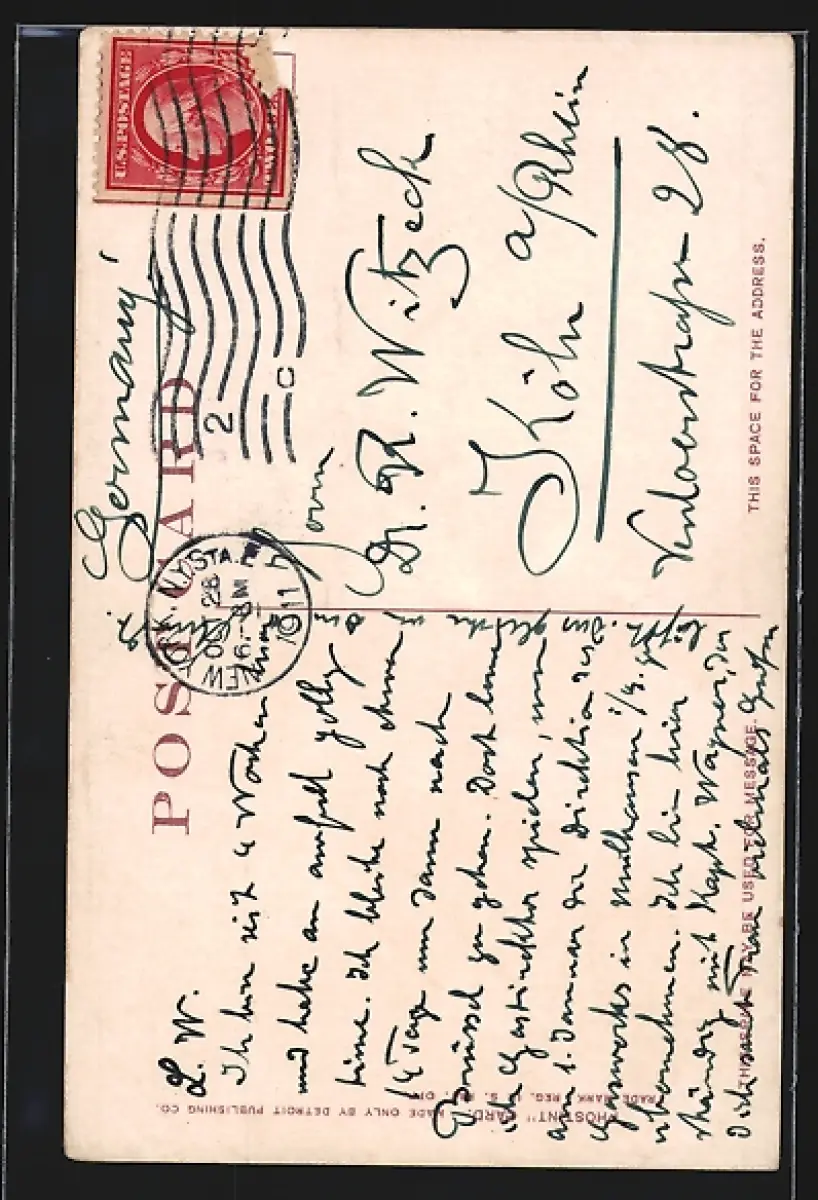 POST CARD
U.S. POSTAGE
NEW YORK, N.Y. STA. E
OCT 28
6 - PM
1911
2 C
Germany
Herrn
Dr. R. Witzeck
Köln a/Rhein
Venloerstrasse 28.
THIS SPACE FOR THE ADDRESS.
L. W.
Ich bin seit 4 Wochen hier
und habe an
. Ich bleibe noch etwa
14 Tage um dann nach
Brüssel zu gehen. Dort kann
ich Gastdirektor spielen, um
am 1. Januar die Direktion des
Gaswerks in Mülhausen i/E. zu
übernehmen. Ich bin hier
ständig mit Kapt. Wagner, der
Dich nebst Frau vielmals
THIS SPACE MAY BE USED FOR MESSAGE.
"PHOSTINT" CARD. MADE ONLY BY DETROIT PUBLISHING CO.
TRADE MARK REG. U. S. PAT. OFF.